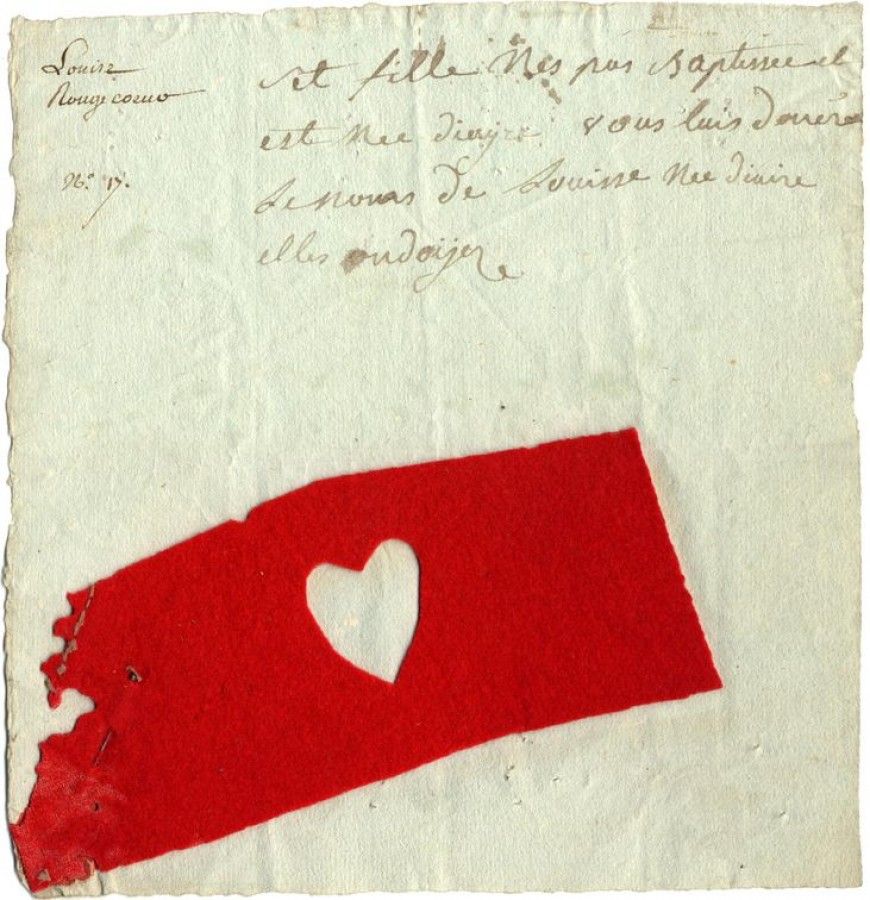 Louise
Rougecoeur
N.º 17.
Set fille Nes pas Baptissee et
est Nee diayre vous luis donéré
Le nom de Louisse Nee diaire
elles ondoijez